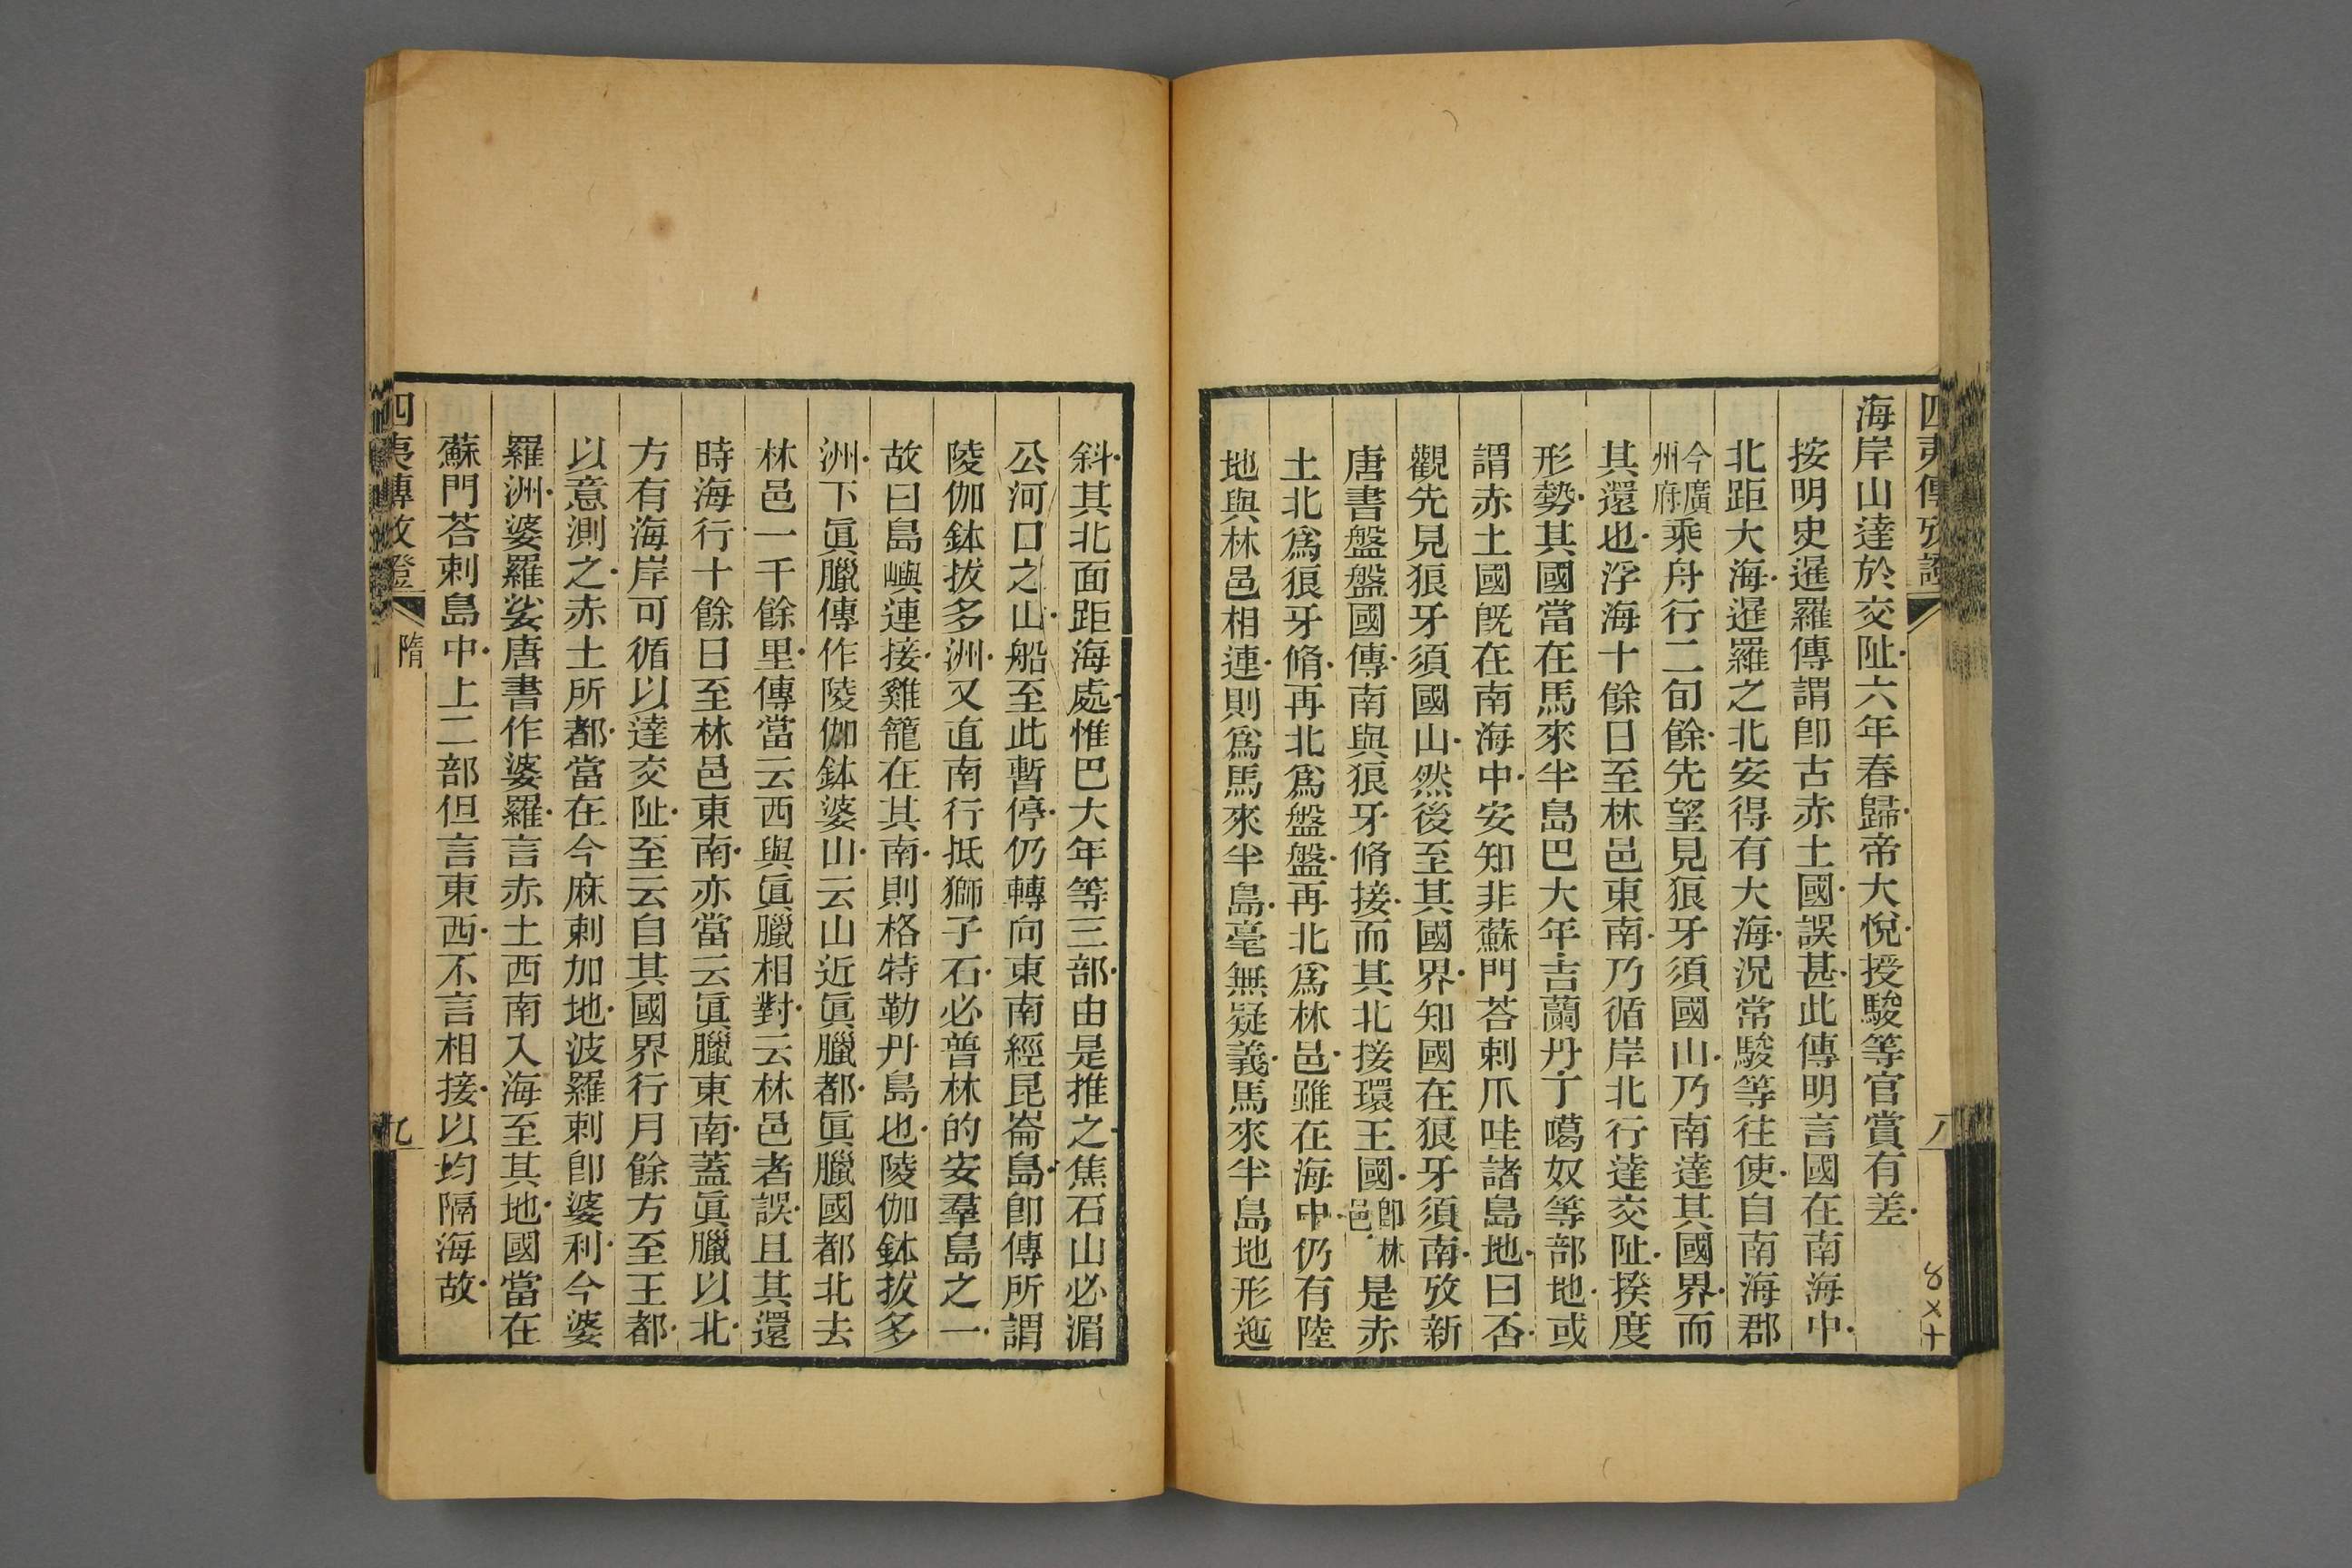 四夷傳攷證
八
海岸山達於交阯六年春歸帝大悅授駿等官賞有差
按明史暹羅傳謂卽古赤土國誤甚此傳明言國在南海中
北距大海暹羅之北安得有大海況常駿等往使自南海郡
今廣州府乘舟行二旬餘先望見狼牙須國山乃南達其國界而
其還也浮海十餘日至林邑東南乃循岸北行達交阯揆度
形勢其國當在馬來半島巴大年吉蘭丹丁噶奴等部地或
謂赤土國旣在南海中安知非蘇門荅剌爪哇諸島地曰否
觀先見狼牙須國山然後至其國界知國在狼牙須南攷新
唐書盤盤國傳南與狼牙脩接而其北接環王國卽林邑是赤
土北爲狼牙脩再北爲盤盤再北爲林邑雖在海中仍有陸
地與林邑相連則爲馬來半島毫無疑義馬來半島地形迤
斜其北面距海處惟巴大年等三部由是推之焦石山必湄
公河口之山船至此暫停仍轉向東南經昆崙島卽傳所謂
陵伽鉢拔多洲又直南行抵獅子石必普林的安羣島之一
故曰島嶼連接雞籠在其南則格特勒丹島也陵伽鉢拔多
洲下眞臘傳作陵伽鉢婆山云山近眞臘都眞臘國都北去
林邑一千餘里傳當云西與眞臘相對云林邑者誤且其還
時海行十餘日至林邑東南亦當云眞臘東南蓋眞臘以北
方有海岸可循以達交阯至云自其國界行月餘方至王都
以意測之赤土所都當在今麻剌加地波羅剌卽婆利今婆
羅洲婆羅娑唐書作婆羅言赤土西南入海至其地國當在
蘇門荅剌島中上二部但言東西不言相接以均隔海故
四夷傳攷證
隋
九